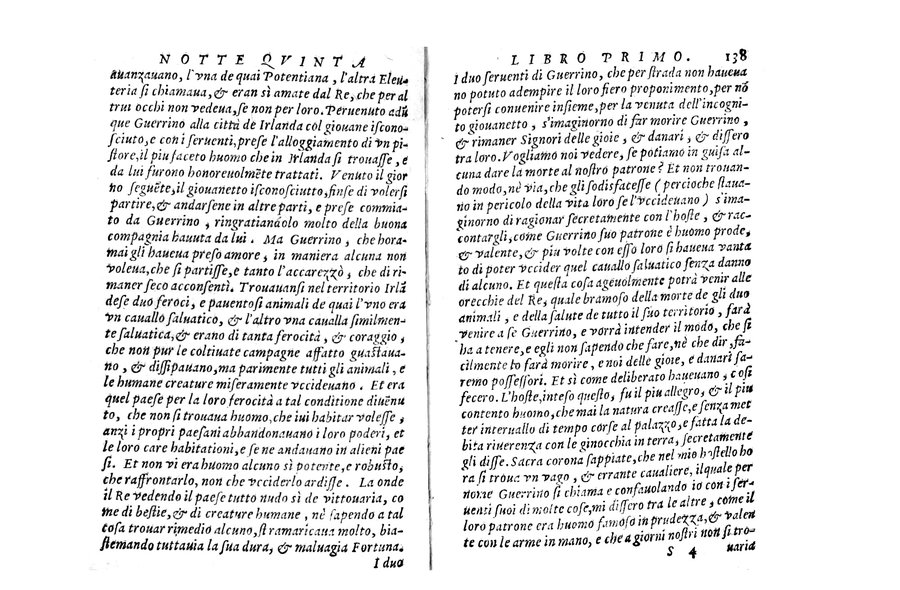 NOTTE QVINTA
auanzauano, l'vna de quai Potentiana, l'altra Eleu
teria si chiamaua, & eran sì amate dal Re, che per al
trui occhi non vedeua, se non per loro. Peruenuto adũ
que Guerrino alla città de Irlanda col giouane iscono-
sciuto, e con i seruenti, prese l'alloggiamento di vn pi-
store, il piu faceto huomo che in Irlanda si trouasse, e
da lui furono honoreuolmẽte trattati. Venuto il gior
no seguẽte, il giouanetto isconosciuto, finse di volersi
partire, & andarsene in altre parti, e prese commia-
to da Guerrino, ringratiandolo molto della buona
compagnia hauuta da lui. Ma Guerrino, che hora-
mai gli haueua preso amore, in maniera alcuna non
voleua, che si partisse, e tanto l'accarezzò, che di ri-
maner seco acconsentì. Trouauansi nel territorio Irlã
dese duo feroci, e pauentosi animali de quai l'vno era
vn cauallo saluatico, & l'altro vna caualla similmen-
te saluatica, & erano di tanta ferocità, & coraggio,
che non pur le coltiuate campagne affatto guastaua-
no, & dissipauano, ma parimente tutti gli animali, e
le humane creature miseramente vccideuano. Et era
quel paese per la loro ferocità a tal conditione diuẽnu
to, che non si trouaua huomo, che iui habitar volesse,
anzi i propri paesani abbandonauano i loro poderi, et
le loro care habitationi, e se ne andauano in alieni pae
si. Et non vi era huomo alcuno sì potente, e robusto,
che raffrontarlo, non che vcciderlo ardisse. La onde
il Re vedendo il paese tutto nudo sì de vittouaria, co
me di bestie, & di creature humane, nè sapendo a tal
cosa trouar rimedio alcuno, si ramaricaua molto, bia-
stemando tuttauia la sua dura, & maluagia Fortuna.
I duo
LIBRO PRIMO. 138
I duo seruenti di Guerrino, che per strada non haueua
no potuto adempire il loro fiero proponimento, per nõ
potersi conuenire insieme, per la venuta dell'incogni-
to giouanetto, s'imaginorno di far morire Guerrino,
& rimaner Signori delle gioie, & danari, & differo
tra loro. Vogliamo noi vedere, se potiamo in guisa al-
cuna dare la morte al nostro patrone? Et non trouan-
do modo, nè via, che gli sodisfacesse (percioche staua-
no in pericolo della vita loro se l'vccideuano) s'ima-
ginorno di ragionar secretamente con l'hoste, & rac-
contargli, come Guerrino suo patrone è huomo prode,
& valente, & piu volte con esso loro si haueua vanta
to di poter vccider quel cauallo saluatico senza danno
di alcuno. Et questa cosa ageuolmente potrà venir alle
orecchie del Re, quale bramoso della morte de gli duo
animali, e della salute de tutto il suo territorio, farà
venire a se Guerrino, e vorrà intender il modo, che si
ha a tenere, e egli non sapendo che fare, nè che dir, fa-
cilmente lo farà morire, e noi delle gioie, e danari sa-
remo possessori. Et sì come deliberato haueuano, così
fecero. L'hoste, inteso questo, fu il piu allegro, & il piu
contento huomo, che mai la natura creasse, e senza met
ter interuallo di tempo corse al palazzo, e fatta la de-
bita riuerenza con le ginocchia in terra, secretamente
gli disse. Sacra corona sappiate, che nel mio hostello ho
ra si troua vn vago, & errante caualiere, il quale per
nome Guerrino si chiama e confauolando io con i ser-
uenti suoi di molte cose, mi differo tra le altre, come il
loro patrone era huomo famoso in prudezza, & valen
te con le arme in mano, e che a giorni nostri non si tro-
S 4 uaria